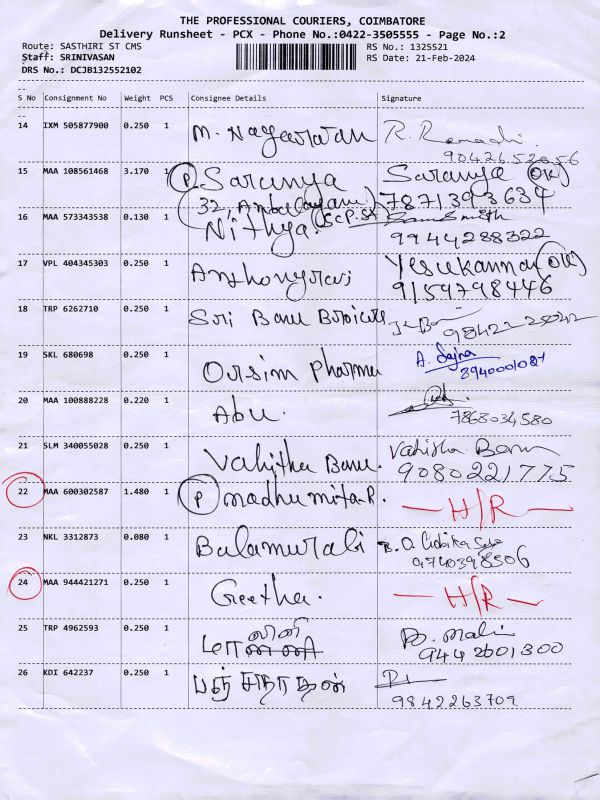 THE PROFESSIONAL COURIERS, COIMBATORE
Delivery Runsheet - PCX - Phone No.:0422-3505555 - Page No.:2
Route: SASTHIRI ST CMS RS No.: 1325521
Staff: SRINIVASAN RS Date: 21-Feb-2024
DRS No.: DCJB132552102
S No Consignment No Weight PCS Consignee Details Signature
14 IXM 505877900 0.250 1 M. R.
15 MAA 108561468 3.170 1 P Saranya Saranya OK
32, 7871393634
16 MAA 573343538 0.130 1 Nithya.
9944288322
17 VPL 404345303 0.250 1 Anthonyraj Yesukannan OK
9159798446
18 TRP 6262710 0.250 1 Sri Banu
19 SKL 680698 0.250 1 Oursim Pharma A.
8940001087
20 MAA 100888228 0.220 1 Abu.
7868034580
21 SLM 340055028 0.250 1 Vahitha Banu. Vahitha Banu
9080221775
22 MAA 600302587 1.480 1 P Madhumita.R. H/R
23 NKL 3312873 0.080 1 Balamurali
9740398506
24 MAA 944421271 0.250 1 Geetha. H/R
25 TRP 4962593 0.250 1
9442601300
26 KDI 642237 0.250 1
9842263709